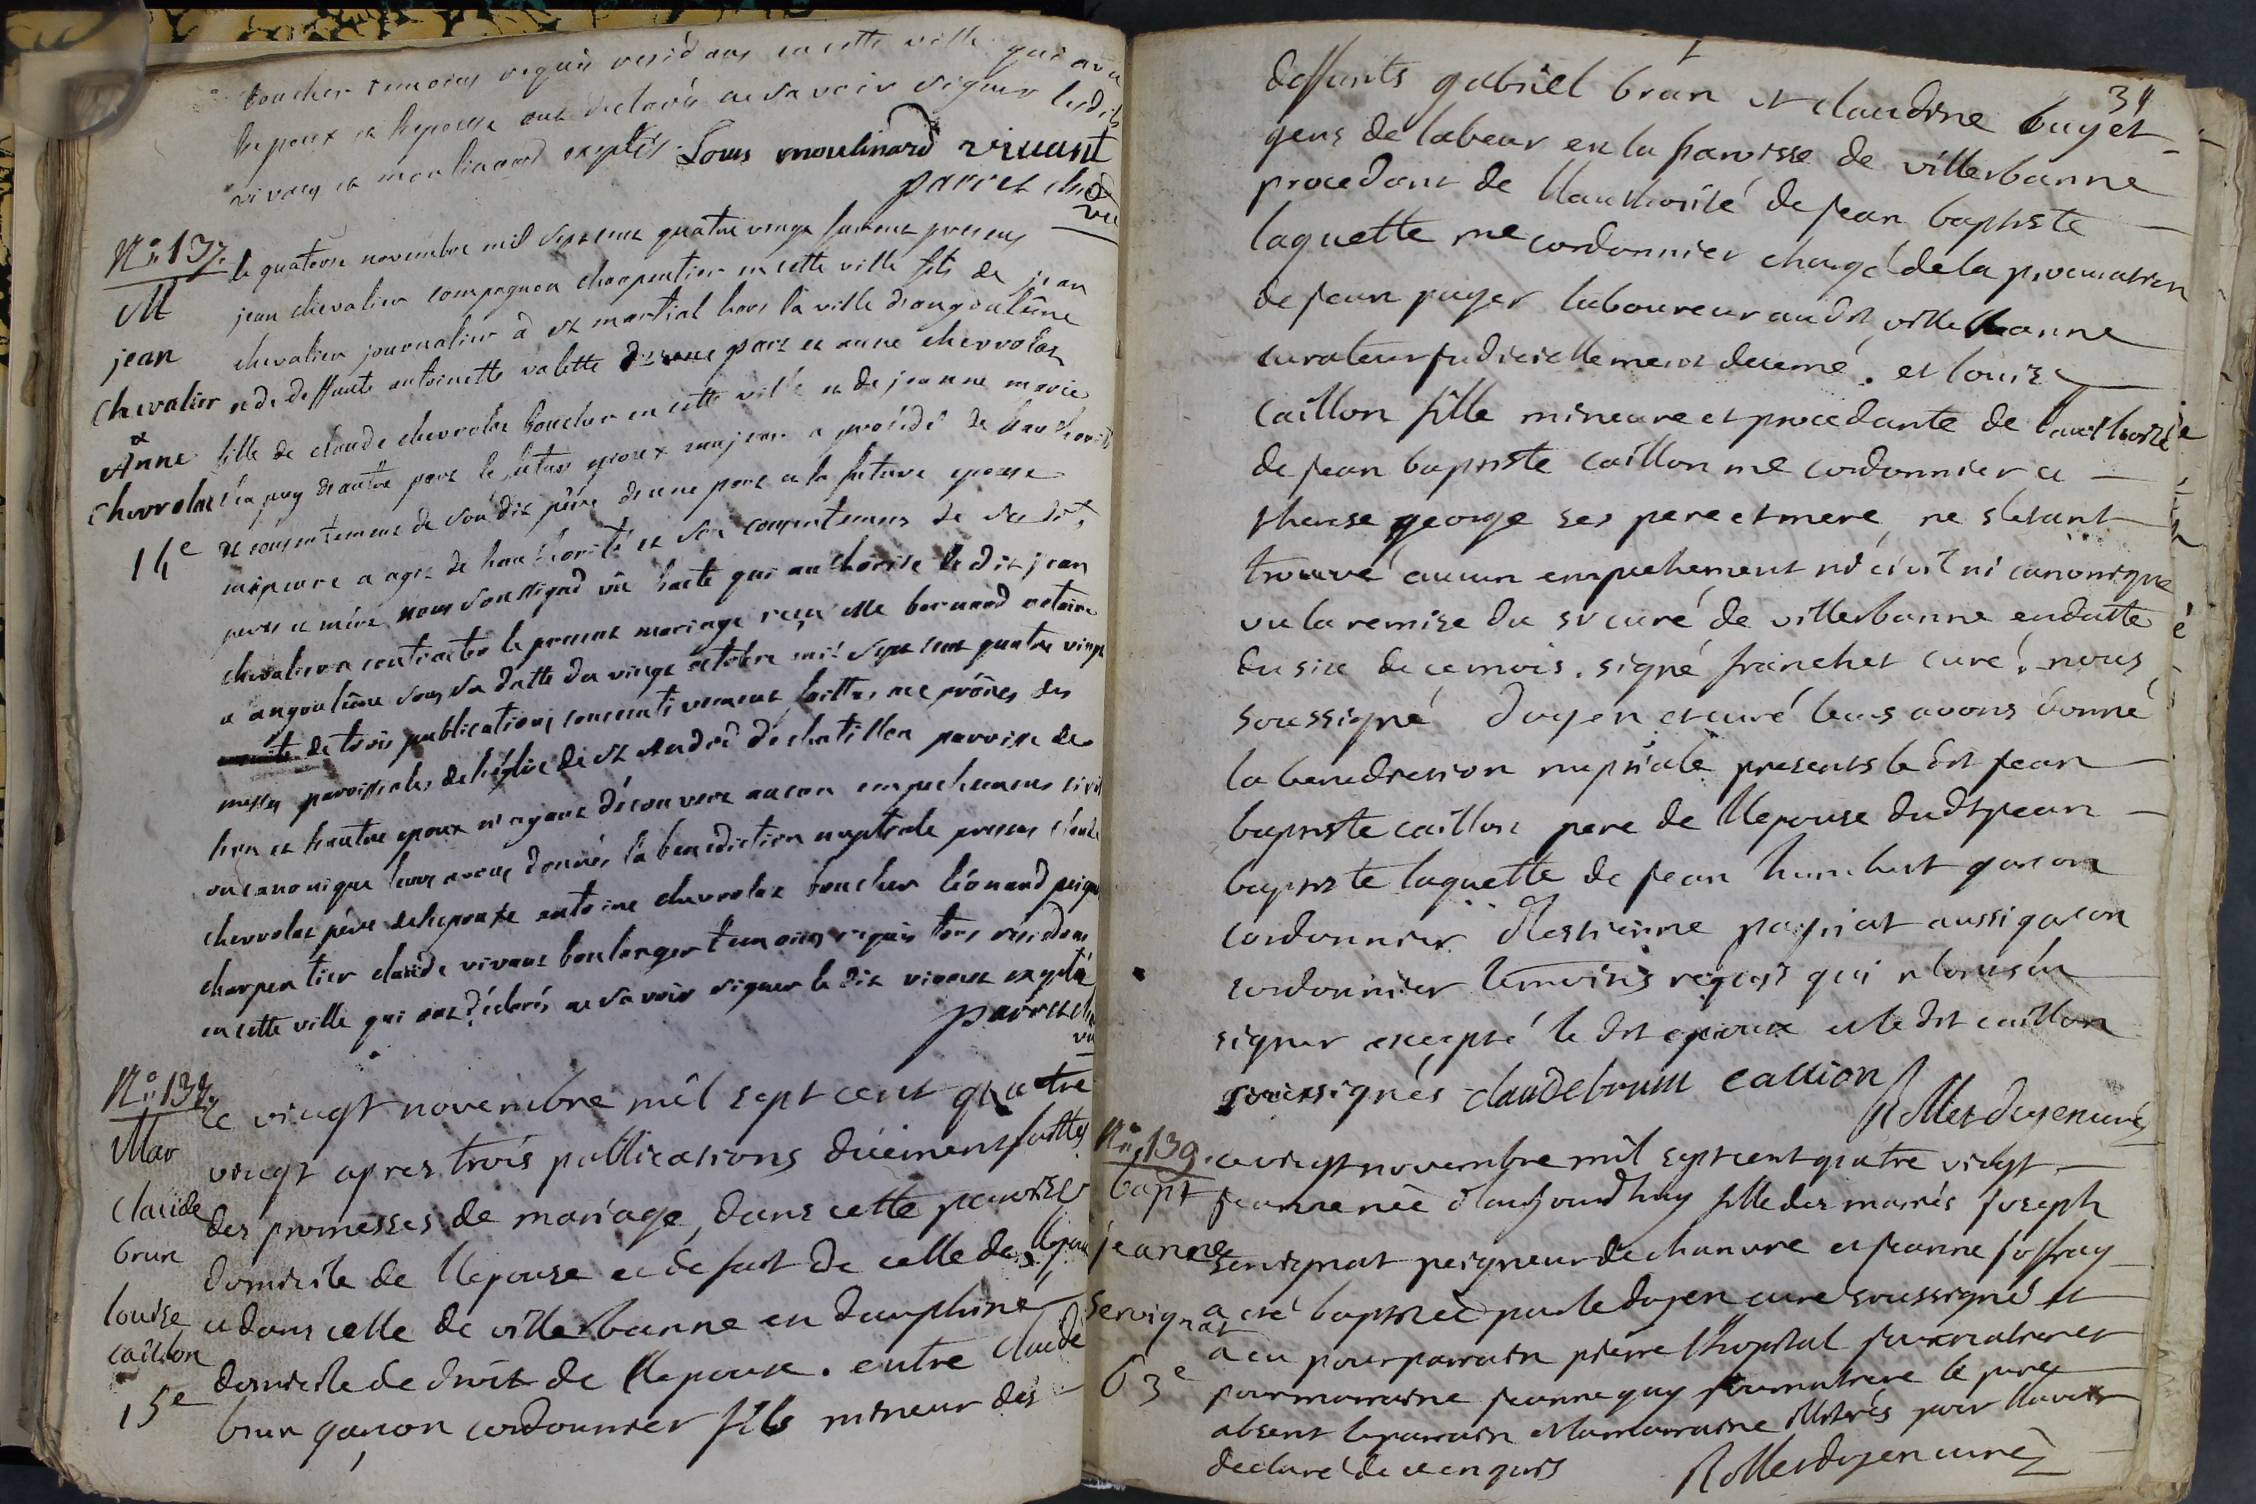 boucher temoins requis residans en cette ville qui avec
l'epoux et l'epouse ont declarés ne savoir signer lesdits
vivant et moulinard exceptés. Louis moulinard vivant
parret
vic
N.° 137.
M
jean
chevalier
&
Anne
chevrolat
14e
le quatorse novembre mil sept cent quatre vingt furent presens
jean chevalier compagnon charpentier en cette ville fils de jean
chevalier journalier à st martial hors la ville d'angoulême
et de deffunte antoinette valette d'une part et anne chevrolat
fille de claude chevrolat boucher en cette ville et de jeanne marie
du puy d'autre part le futur epoux majeur a procédé de l'authorité
et consentement de son dit père d'une part et la future epouse
mineure a agit de l'authorité et du consentement de ses dits
pere et mère nous soussigné vû l'acte qui authorise le dit jean
chevalier a contracter le present mariage reçu Me bernard notaire
a angoulême sous sa datte du vingt octobre mil sept cent quatre vingt
ensuite de trois publications consecutivement faittes aux prônes des
messes paroissiales de l'église de st André de chatillon paroisse de
l'un et l'autre epoux n'ayant découvert aucun empechement civil
ou canonique leurs avons donnés la benediction nuptiale presens claude
chevrolat père de l'epouse antoine chevrolat boucher léonard
charpentier claude vivant boulanger temoins requis tous résidans
en cette ville qui ont déclarés ne savoir signer le dit vivant excepté
parret
vic
N.° 138.
Mar
claude
brun
louise
caillon
15e
Le vingt novembre mil sept cent quatre
vingt apres trois publications düement faittes
des promesses de mariage, dans cette paroisse
domicile de l'epouse et de fait de celle de l'epoux
et dans celle de villeurbanne en dauphiné
domicile de droit de l'epoux. entre claude
brun garçon cordonnier fils mineur des
34
deffunts gabriel brun et claudine buyet
gens de labeur en la paroisse de villeurbanne
procedant de l'authorité de jean baptiste
laquette me cordonnier chargé de la procuration
de jean payer laboureur audit villeurbanne
curateur judiciellement decerné. et louise
caillon fille mineure et procedante de l'authorité
de jean baptiste caillon me cordonnier et
therese george ses pere et mere, ne s'etant
trouvé aucun empechement ni civil ni canonique
vu la remise du sr curé de villeurbanne en datte
du six de ce mois. signé franchet curé. nous
soussigné doyen et curé leurs avons donné
la benediction nuptiale presents le dit jean
baptiste caillon pere de l'epouse dudt jean
baptiste laquette de jean humbert garcon
cordonnier d'estienne payriat aussi garcon
cordonnier temoins requis qui n'ont su
signer excepté le dit epoux et le dit caillon
soussignés claude brun caillon
Rollet doyen curé
N.° 139.
bapt
jeanne
servignat
63e
ce vingt novembre mil sept cent quatre vingt
jeanne née d'aujourd'huy fille des mariés joseph
servignat peigneur de chanvre et jeanne joffray
a eté baptisée par le doyen curé soussigné et
a eu pour parrain pierre l'hopital journalier et
pour marraine jeanne guy journaliere le pere
absent le parrain et la marraine illiterés pour l'avoir
declaré de ce enquis
Rollet doyen curé